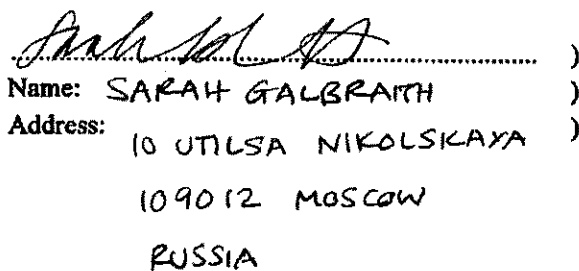 )
Name: SARAH GALBRAITH )
Address: )
10 UTILSA NIKOLSKAYA
109012 MOSCOW
RUSSIA